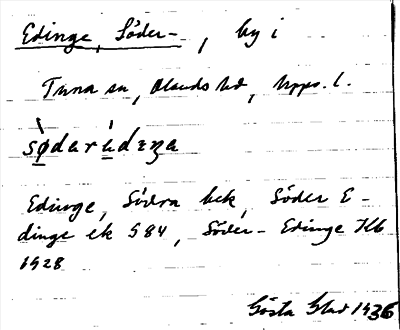 Edinge, Söder-, by i
Tuna sn, Olands hd, Upps. l.
sø̀darùdɛŋa
Edinge, Södra bek, Söder E-
dinge ek 584, Söder- Edinge Hlb
1928
Gösta Blad 1936